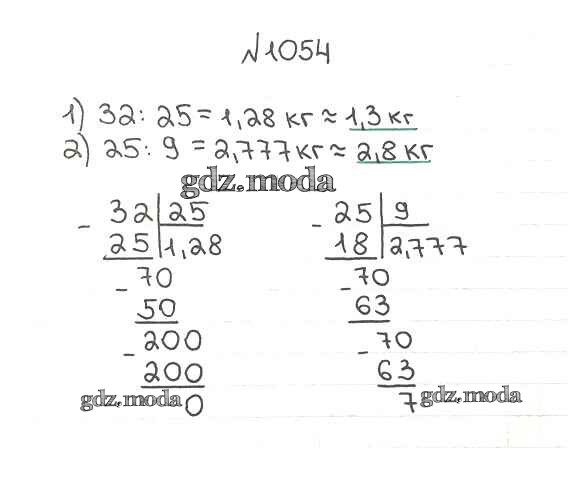 №1054
1) 32 : 25 = 1,28 кг ≈ 1,3 кг
2) 25 : 9 = 2,777 кг ≈ 2,8 кг
gdz.moda
- 32 | 25
25 | 1,28
- 70
50
- 200
200
0
- 25 | 9
18 | 2,777
- 70
63
- 70
63
7
gdz.moda
gdz.moda